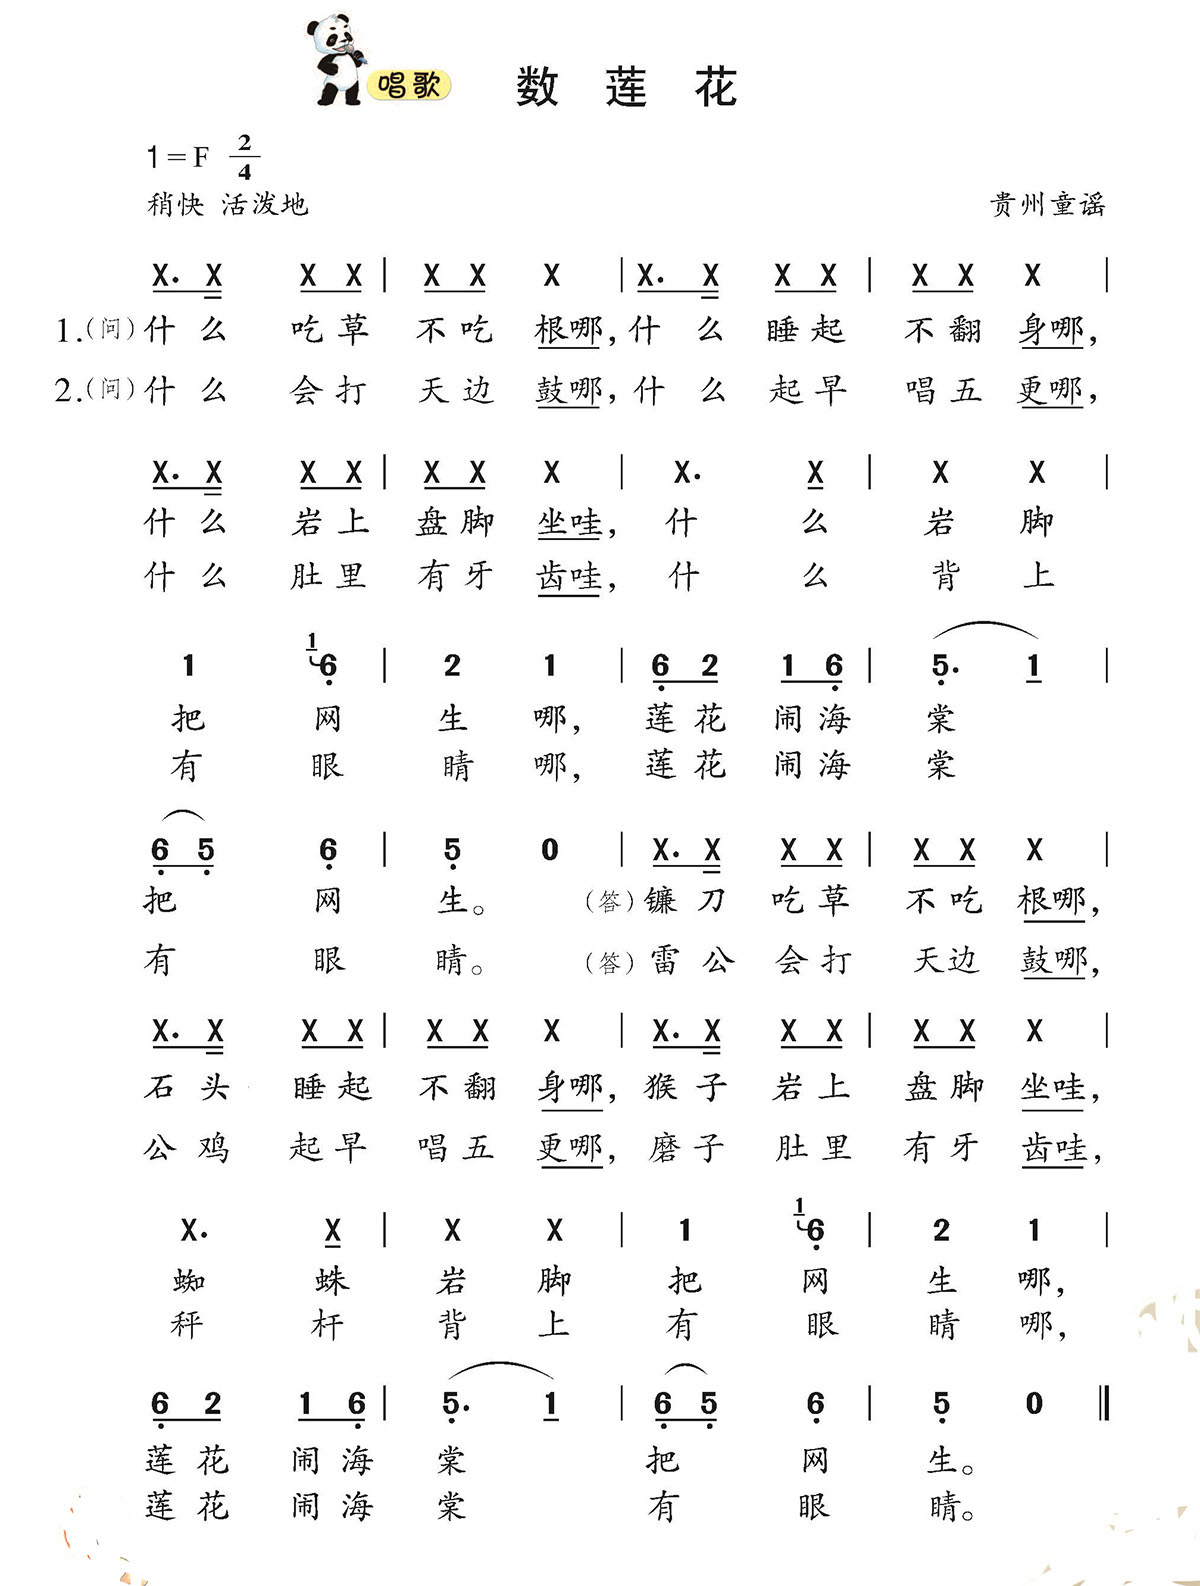 唱歌 数莲花
1=F 2/4
稍快 活泼地 贵州童谣
X. X X X | X X X | X. X X X | X X X |
1.(问)什么 吃草 不吃 根哪,什么 睡起 不翻 身哪,
2.(问)什么 会打 天边 鼓哪,什么 起早 唱五 更哪,
X. X X X | X X X | X. X | X X |
什么 岩上 盘脚 坐哇,什 么 岩 脚
什么 肚里 有牙 齿哇,什 么 背 上
1 1 6 | 2 1 | 6 2 1 6 | 5. 1 |
把 网 生 哪,莲花 闹海 棠
有 眼 睛 哪,莲花 闹海 棠
6 5 6 | 5 0 | X. X X X | X X X |
把 网 生。(答)镰刀 吃草 不吃 根哪,
有 眼 睛。(答)雷公 会打 天边 鼓哪,
X. X X X | X X X | X. X X X | X X X |
石头 睡起 不翻 身哪,猴子 岩上 盘脚 坐哇,
公鸡 起早 唱五 更哪,磨子 肚里 有牙 齿哇,
X. X | X X | 1 1 6 | 2 1 |
蜘 蛛 岩 脚 把 网 生 哪,
秤 杆 背 上 有 眼 睛 哪,
6 2 1 6 | 5. 1 | 6 5 6 | 5 0 ‖
莲花 闹海 棠 把 网 生。
莲花 闹海 棠 有 眼 睛。